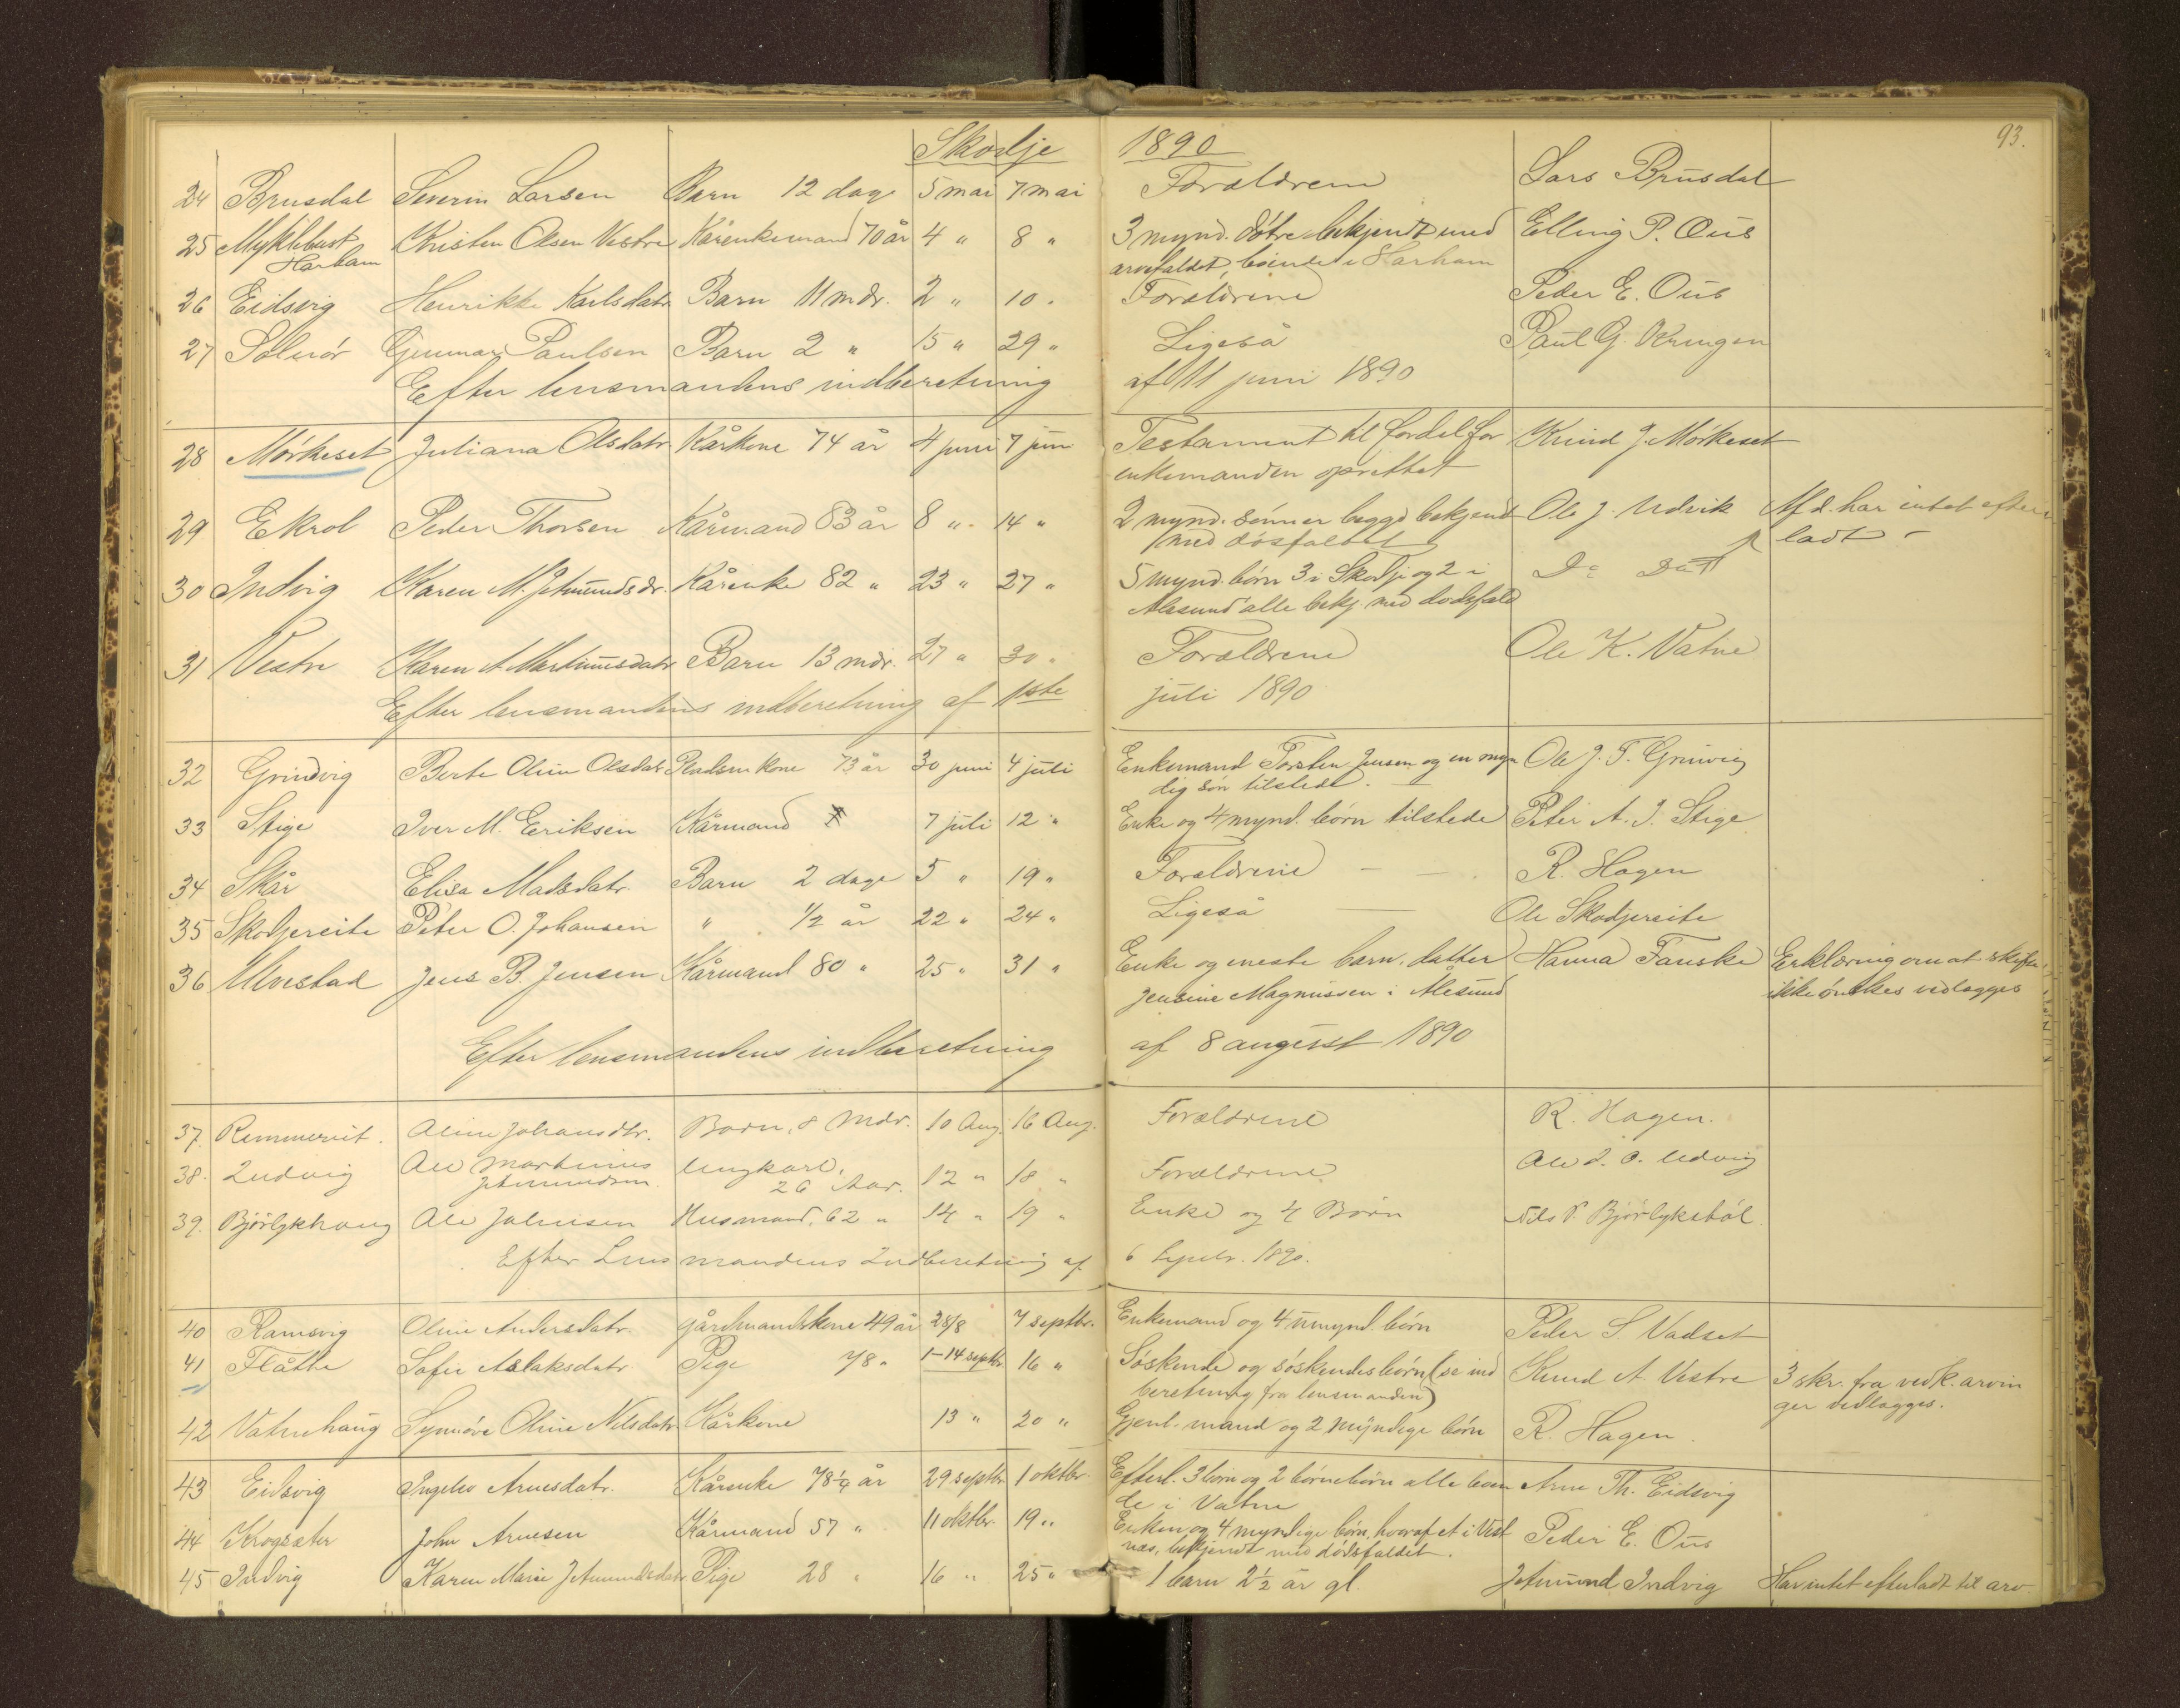 Skodje 1890 93.
24 Brusdal Severin Larsen Barn 12 dage 5 mai 7 mai Forældrene Lars Brusdal
25 Myklebust Kristen Olsen Vestre Kårenkemand 70 år 4 " 8 " 3 mynd. døtre bekjendt med Elling P. Ous
Harham arvefaldet, boende i Harham
26 Eidsvig Henrikke Karlsdatr. Barn 11 mdr. 2 " 10 " Forældrene Peder E. Ous
27 Solnør Gunnar Paulsen Barn 2 " 15 " 29 " Ligeså Paul G. Kringen
Efter lensmandens indberetning af 11 juni 1890
28 Mørkeset Juliana Olsdatr. Kårkone 74 år 4 juni 7 juni Testament til fordel for Knud J. Mørkeset
enkemanden oprettet
29 Ekrol Peder Thorsen Kårmand 83 år 8 " 14 " 2 mynd. sønner begge bekjendt Ole J. Udvik Afd. har intet efter
med dødsfaldet ladt -
30 Indvig Karen M. Jetmundsdr. Kårenke 82 " 23 " 27 " 5 mynd. børn 3 i Skodje og 2 i Do Do
Ålesund alle bekj. med dødsfald
31 Vestre Karen A. Martinusdatr. Barn 13 mdr. 27 " 30 " Forældrene Ole K. Vatne
Efter lensmandens indberetning af 11te juli 1890
32 Grindvig Berte Oline Olsdatr. Pladsmkone 73 år 30 juni 4 juli Enkemand Torsten Jensen og en myn Ole J. T. Grinvig
dig søn tilstede.
33 Stige Iver M. Eriksen Kårmand 7 juli 12 " Enke og 4 mynd. børn tilstede Peter A. I. Stige
34 Skår Elisa Madsdatr. Barn 2 dage 5 " 19 " Forældrene R. Hagen
35 Skodjereite Peter O. Johansen " 1/2 år 22 " 24 " Ligeså Ole Skodjereite
36 Ulvestad Jens B. Jensen Kårmand 80 " 25 " 31 " Enke og eneste barn, datter Hanna Fauske Erklæring om at skifte
Jensine Magnussen i Ålesund ikke ønskes vedlægges
Efter lensmandens indberetning af 8 august 1890
37. Remmereit. Aline Johansdtr. Barn, 8 Mdr. 10 Aug. 16 Aug. Forældrene R. Hagen.
38. Indvig Ole Martinus Ungkarl, 12 " 18 " Forældrene Ole J. O. Udvig
Jetmundsen 26 Aar.
39. Bjørlykhaug Ole Johnsen Husmand, 62 " 14 " 19 " Enke og 4 Børn Nils P. Bjørlykebøl
Efter Lensmandens Indberetning af 6 Septbr. 1890.
40 Ramsvig Oline Andersdatr. gårdmandskone 49 år 28/8 7 septbr. Enkemand og 4 umynd. børn Peder S. Vadset
41 Flåthe Sofie Aslaksdatr. Pige 78 " 1-14 septbr. 16 " Søskende og søskendes børn (se ind Knud A. Vestre 3 skr. fra vedk. arvin
beretning fra lensmanden) ger vedlægges.
42 Vatnehaug Synnøve Oline Nilsdatr. Kårkone 13 " 20 " Gjenl. mand og 2 myndige børn R. Hagen.
43 Eidsvig Ingeleo Arnesdatr. Kårenke 78 1/4 år 29 septbr. 1 oktbr. Efterl. 3 børn og 2 børnebørn alle boen Arne Th. Eidsvig
de i Vatne
44 Krogsæter John Arnesen Kårmand 57 " 11 oktbr. 19 " Enken og 4 myndige børn, hvoraf et i Vest Peder E. Ous
næs, bekjendt med dødsfaldet.
45 Indvig Karen Marie Jetmundsdatr. Pige 28 " 16 " 25 " 1 barn 2 1/2 år gl. Jetmund Indvig Har intet efterladt til arv